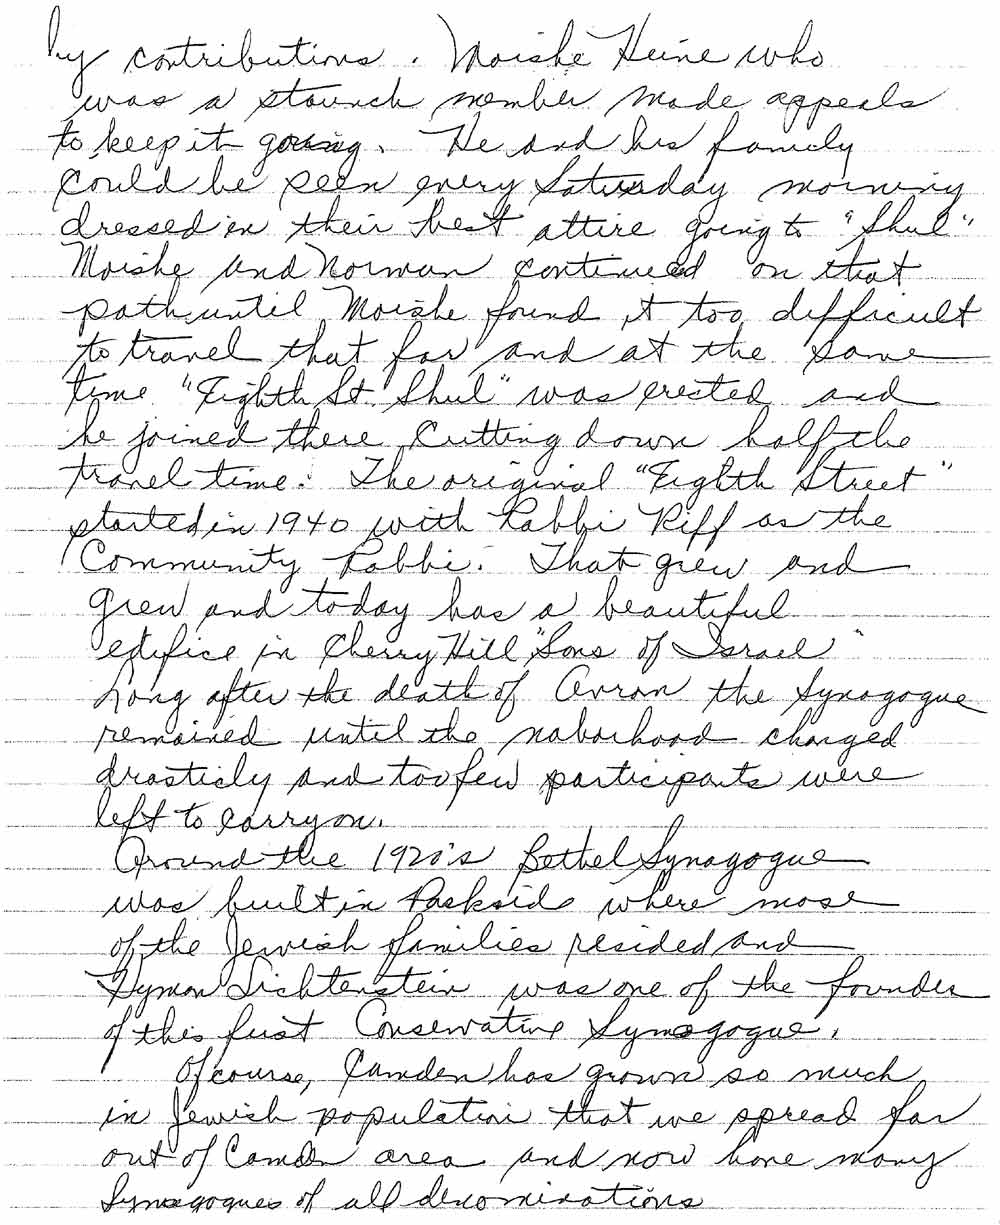 by contributions. Moishe Heine who
was a staunch member made appeals
to keep it going. He and his family
could be seen every Saturday morning
dressed in their best attire going to "Shul"
Moishe and Norman continued on that
path until Moishe found it too difficult
to travel that far and at the same
time "Eighth St. Shul" was erected and
he joined there cutting down half the
travel time. The original "Eighth Street"
started in 1940 with Rabbi Riff as the
Community Rabbi. That grew and
grew and today has a beautiful
edifice in Cherry Hill "Sons of Israel"
Long after the death of Avron the Synagogue
remained until the naborhood changed
drasticly and too few participants were
left to carry on.
Around the 1920's Bethel Synagogue
was built in Parkside where most
of the Jewish families resided and
Hyman Lichtenstein was one of the founder
of this first Conservative Synagogue.
Of course, Camden has grown so much
in Jewish population that we spread far
out of Camden area and now have many
Synagogues of all denominations